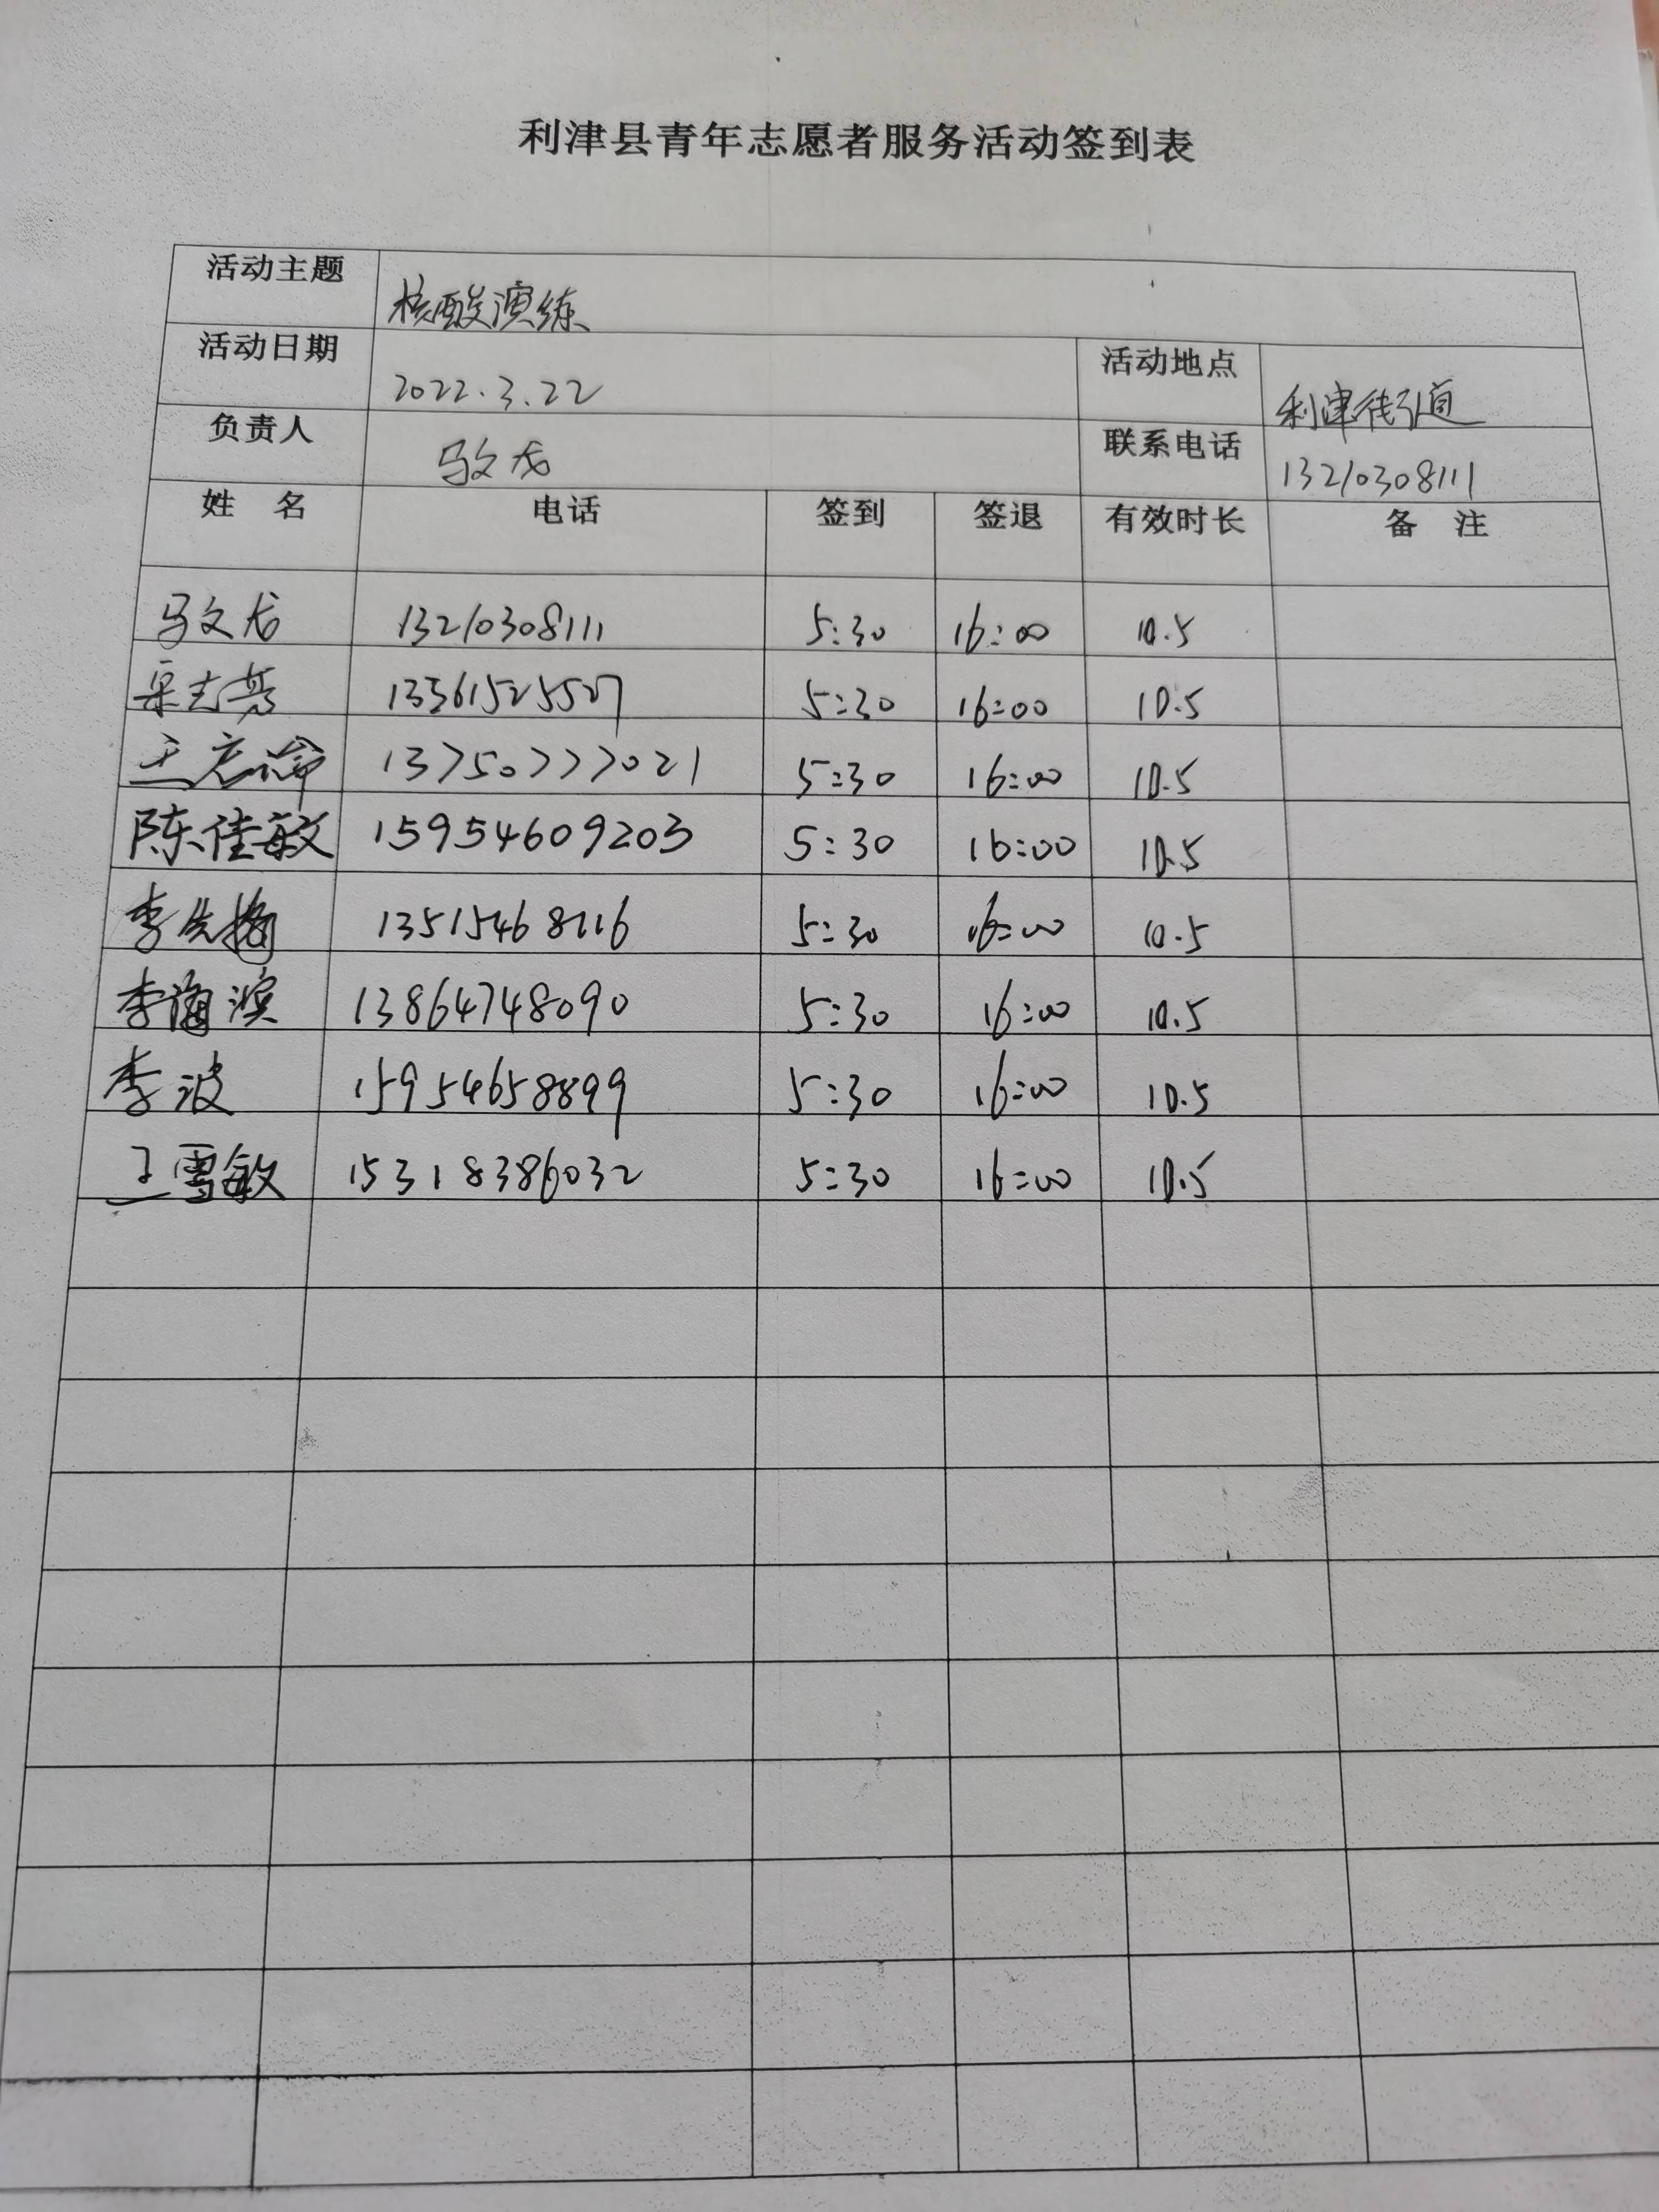 利津县青年志愿者服务活动签到表
活动主题 核酸演练
活动日期 2022.3.22 活动地点 利津街道
负责人 马文龙 联系电话 13210308111
姓 名 电话 签到 签退 有效时长 备 注
马文龙 13210308111 5:30 16:00 10.5
13361525527 5:30 16:00 10.5
王 13750777021 5:30 16:00 10.5
陈佳敏 15954609203 5:30 16:00 10.5
李 13515468116 5:30 16:00 10.5
李海滨 13864748090 5:30 16:00 10.5
李波 15954658899 5:30 16:00 10.5
王雪敏 15318386032 5:30 16:00 10.5